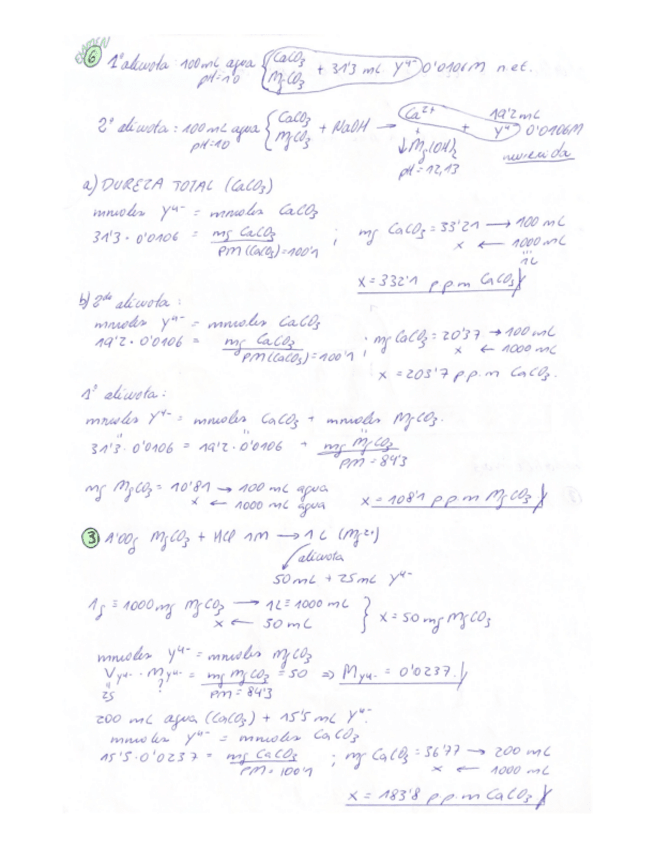 EXAMEN
6 1ª alicuota: 100 mL agua { CaCO3 MgCO3 + 31'3 mL Y4- 0'0106 M n.e.t.
pH=10
2ª alicuota: 100 mL agua { CaCO3 MgCO3 + NaOH → Ca2+ + Y4- 19'2 mL 0'0106M
pH=10 ↓Mg(OH)2 murexida
pH = 12,13
a) DUREZA TOTAL (CaCO3)
mmoles Y4- = mmoles CaCO3
31'3 · 0'0106 = mg CaCO3 / PM(CaCO3)=100'1 ; mg CaCO3 = 33'21 → 100 mL
x ← 1000 mL
1L
x = 332'1 ppm CaCO3
b) 2da alicuota:
mmoles Y4- = mmoles CaCO3
19'2 · 0'0106 = mg CaCO3 / PM(CaCO3)=100'1 ; mg CaCO3 = 20'37 → 100 mL
x ← 1000 mL
x = 203'7 ppm CaCO3.
1ª alicuota:
mmoles Y4- = mmoles CaCO3 + mmoles MgCO3.
31'3 · 0'0106 = 19'2 · 0'0106 + mg MgCO3 / PM = 84'3
mg MgCO3 = 10'81 → 100 mL agua
x ← 1000 mL agua
x = 108'1 ppm MgCO3
3 1'00g MgCO3 + HCl 1M → 1L (Mg2+)
alicuota
50 mL + 25 mL Y4-
1g ≡ 1000 mg MgCO3 → 1L ≡ 1000 mL
x ← 50 mL } x = 50 mg MgCO3
mmoles Y4- = mmoles MgCO3
VY4- · MY4- = mg MgCO3 = 50 / PM = 84'3 ⇒ MY4- = 0'0237
25 ?
200 mL agua (CaCO3) + 15'5 mL Y4-.
mmoles Y4- = mmoles CaCO3
15'5 · 0'0237 = mg CaCO3 / PM = 100'1 ; mg CaCO3 = 36'77 → 200 mL
x ← 1000 mL
x = 183'8 ppm CaCO3